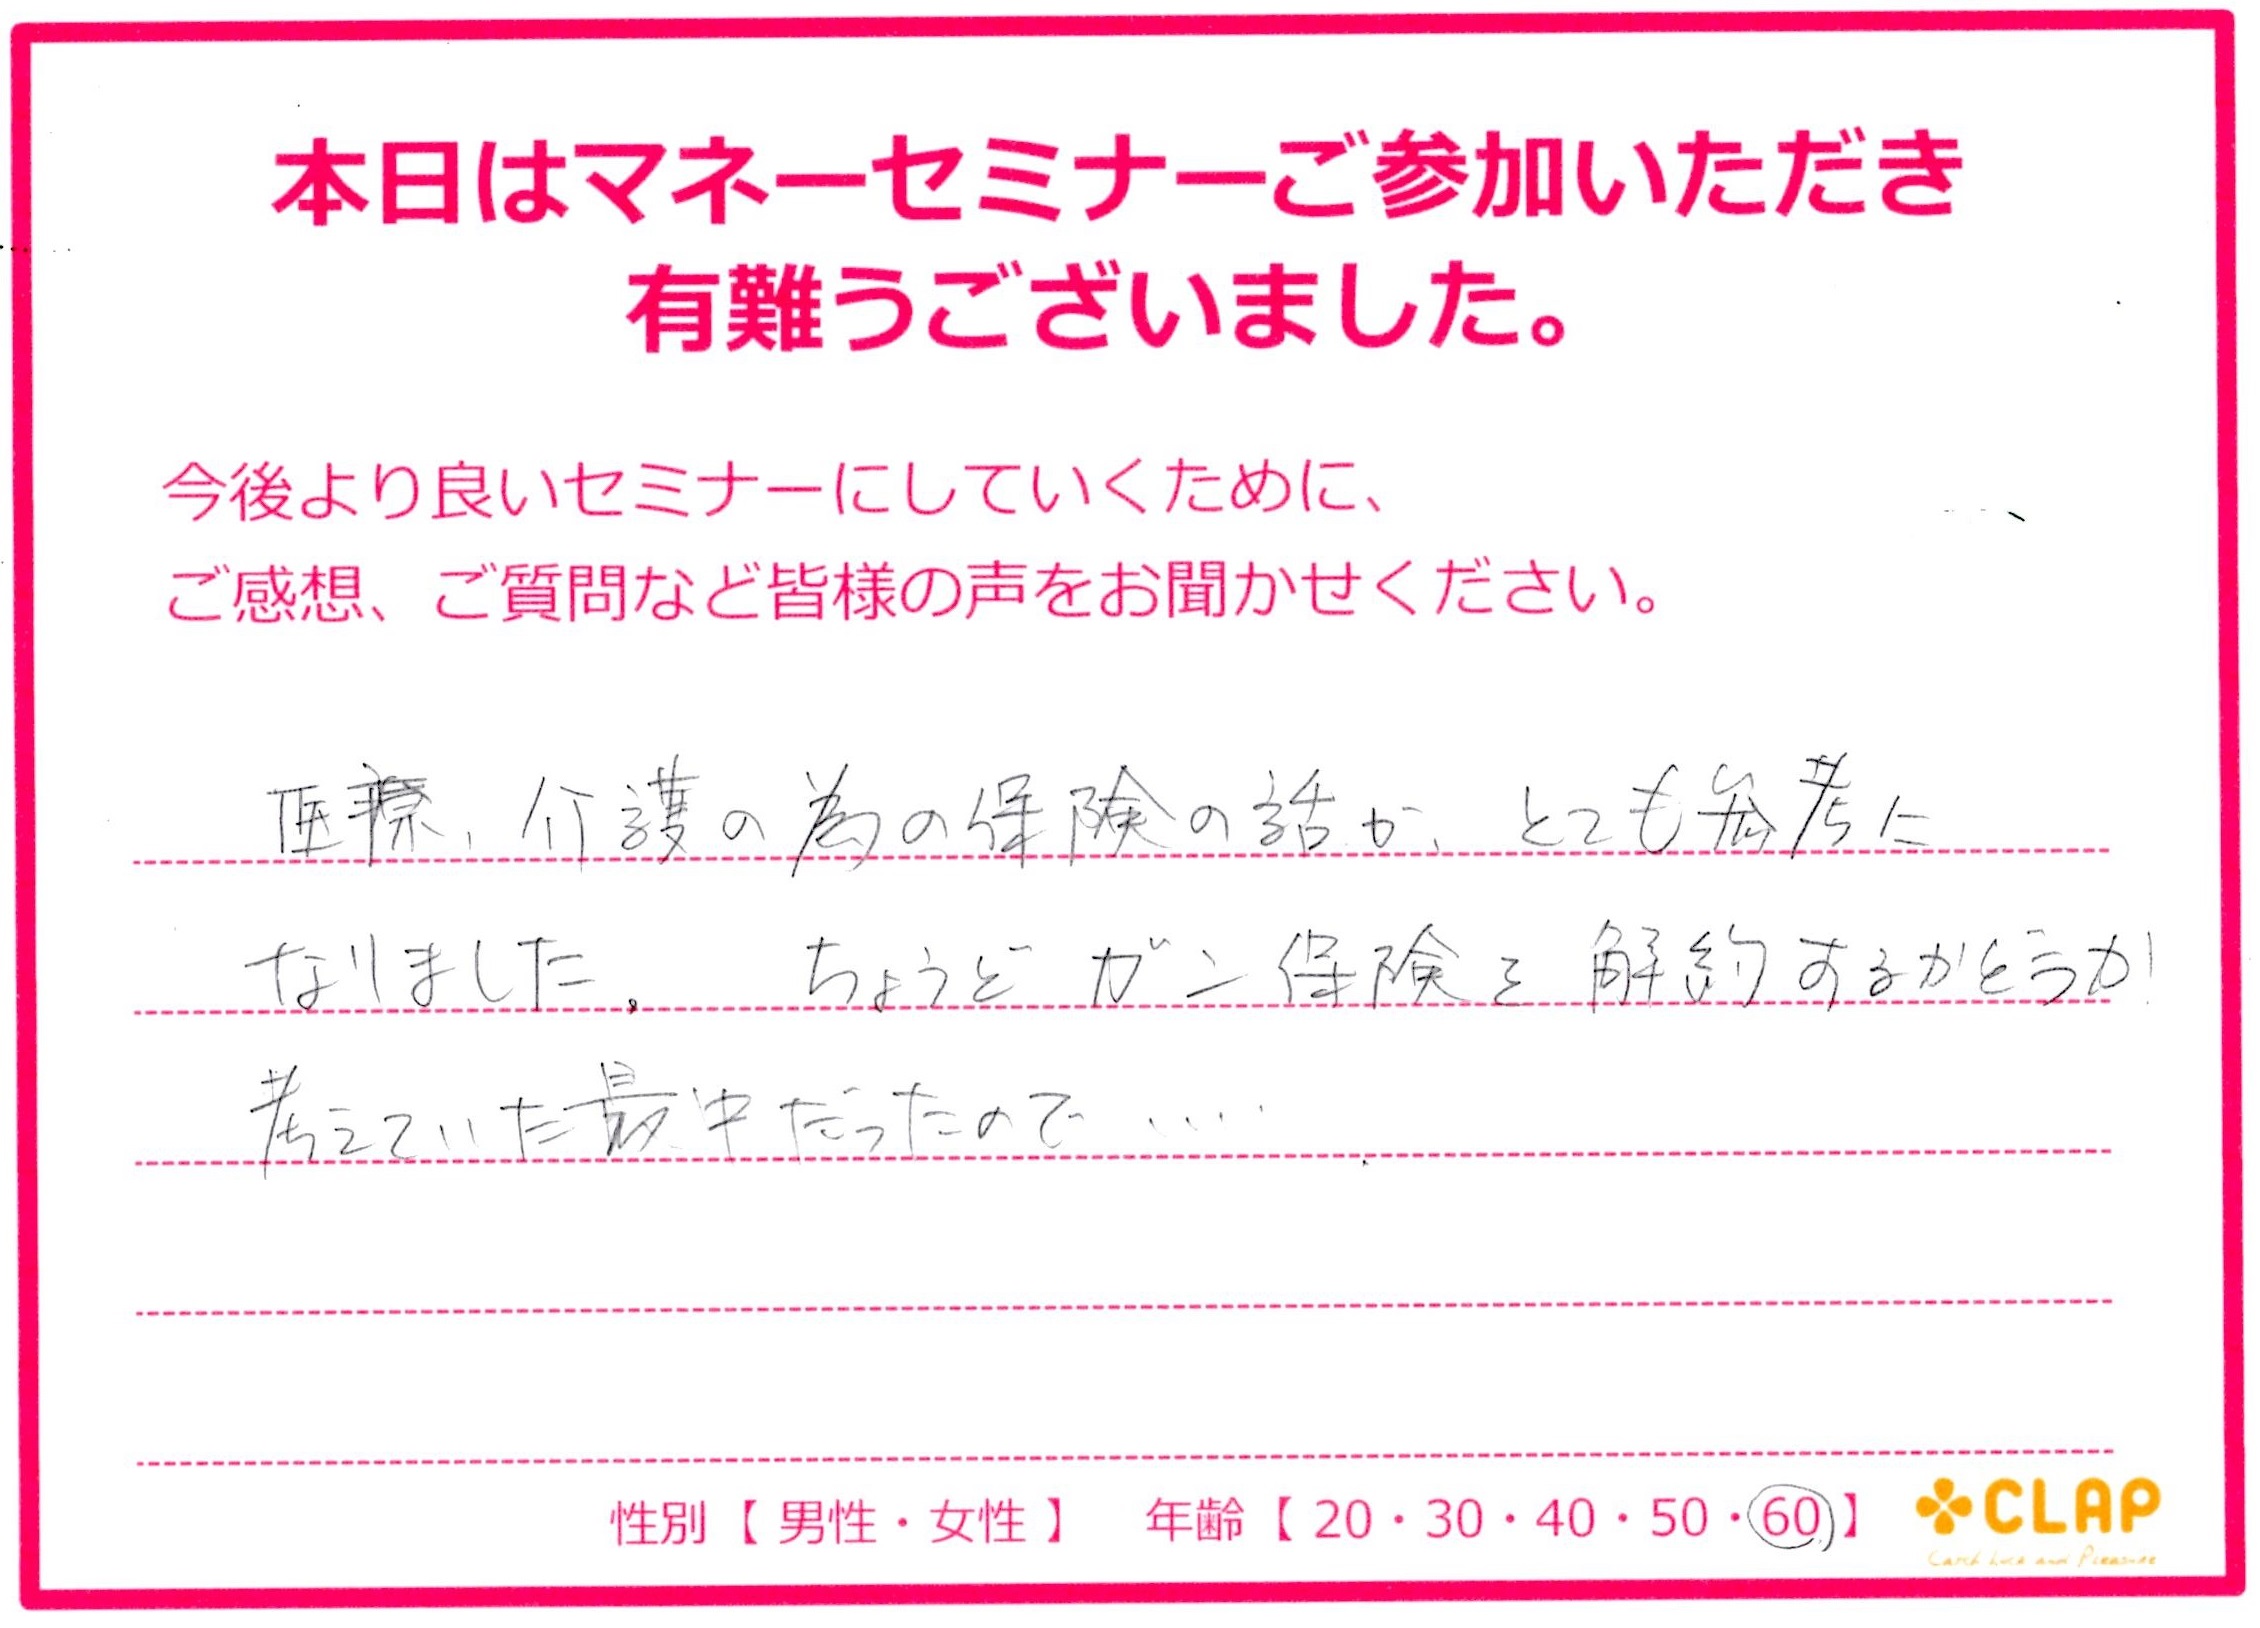 本日はマネーセミナーご参加いただき
有難うございました。
今後より良いセミナーにしていくために、
ご感想、ご質問など皆様の声をお聞かせください。
医療、介護の為の保険の話が、とても参考に
なりました。 ちょうどガン保険を解約するかどうか
考えていた最中だったので・・・・
性別【 男性・女性 】 年齢【 20・30・40・50・60 】 CLAP
Catch Luck and Pleasure